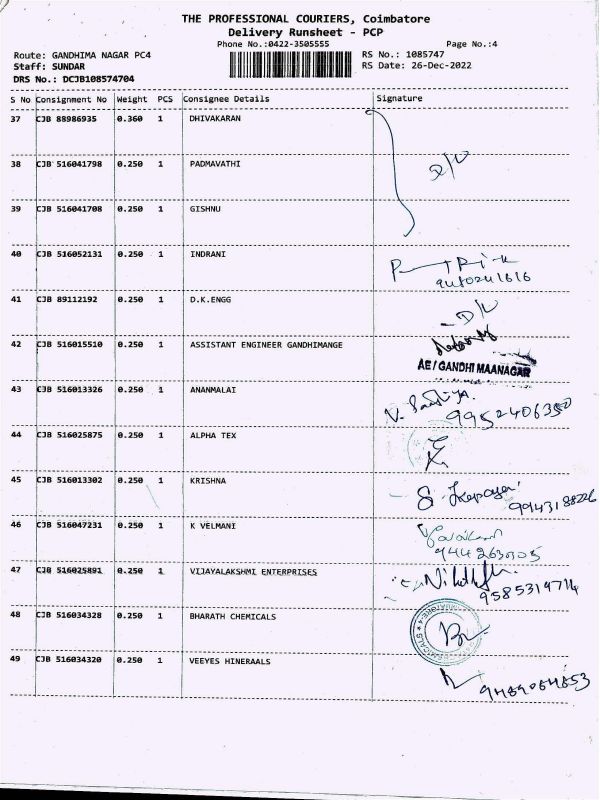 THE PROFESSIONAL COURIERS, Coimbatore
Delivery Runsheet - PCP
Phone No.:0422-3505555 Page No.:4
Route: GANDHIMA NAGAR PC4 RS No.: 1085747
Staff: SUNDAR RS Date: 26-Dec-2022
DRS No.: DCJB108574704
S No Consignment No Weight PCS Consignee Details Signature
37 CJB 88986935 0.360 1 DHIVAKARAN
38 CJB 516041798 0.250 1 PADMAVATHI D/L
39 CJB 516041708 0.250 1 GISHNU
40 CJB 516052131 0.250 1 INDRANI
41 CJB 89112192 0.250 1 D.K.ENGG D/L
42 CJB 516015510 0.250 1 ASSISTANT ENGINEER GANDHIMANGE
AE / GANDHI MAANAGAR
43 CJB 516013326 0.250 1 ANANMALAI
9952406350
44 CJB 516025875 0.250 1 ALPHA TEX
45 CJB 516013302 0.250 1 KRISHNA
9943188226
46 CJB 516047231 0.250 1 K VELMANI
9442630505
47 CJB 516025891 0.250 1 VIJAYALAKSHMI ENTERPRISES
9585314714
48 CJB 516034328 0.250 1 BHARATH CHEMICALS
49 CJB 516034320 0.250 1 VEEYES HINERAALS